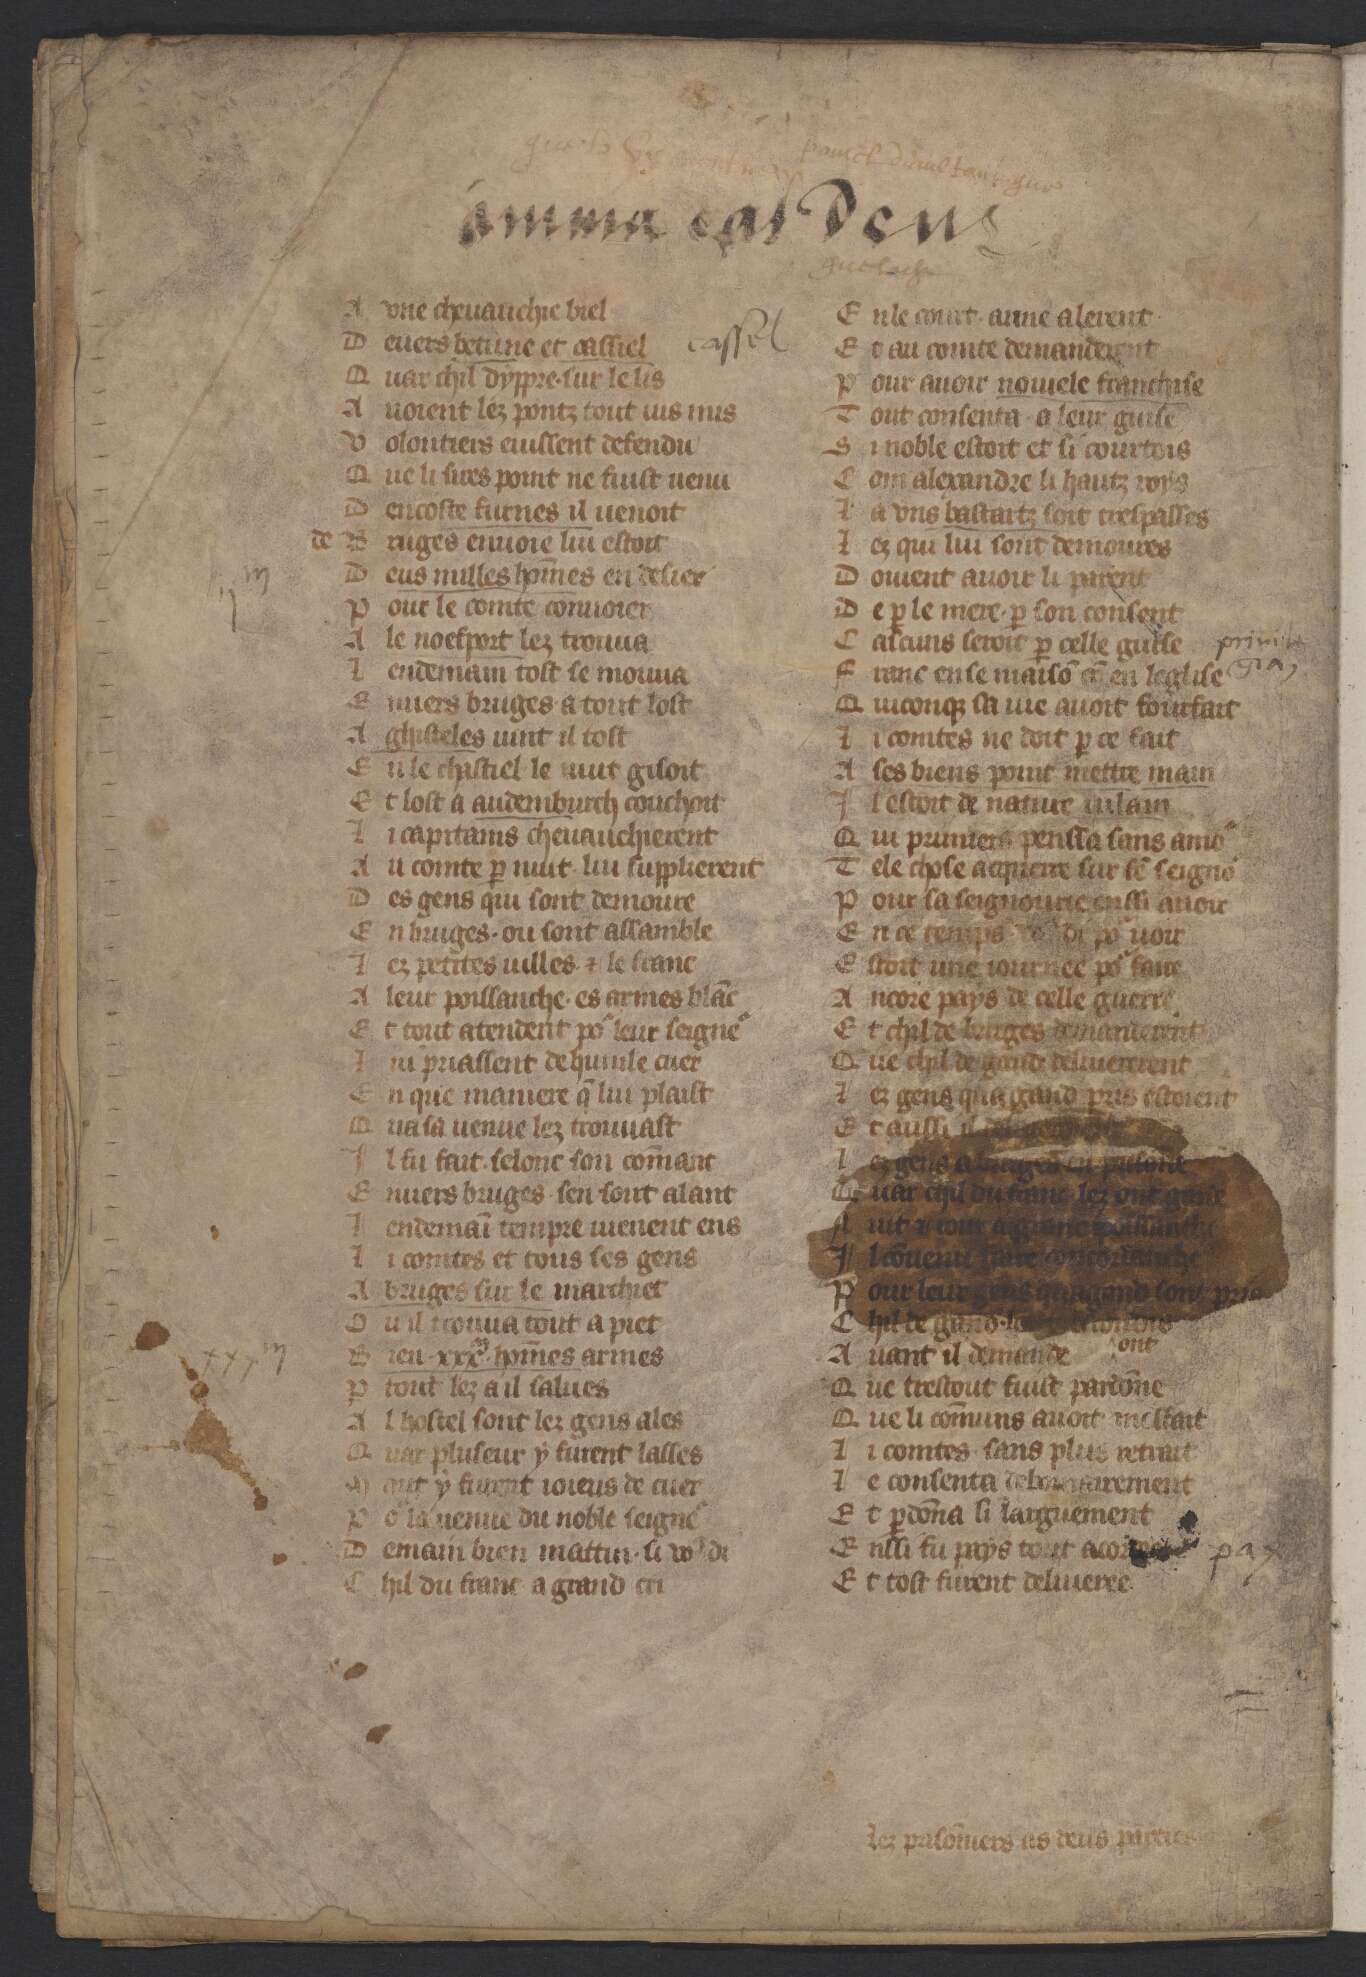 amma eas Deus
A vne cheuauchie biel
D euers betune et cassiel
cassel
Q uar chil dyppre sur le lis
A uoient lez pontz tout ius mis
V olontiers euissent defendu
Q ue li sires point ne fuist uenu
D encoste furnes il uenoit
de B ruges enuoie lui estoit
D eus milles hom̄es en desier
P our le comte conuoier
A le noefport lez trouua
L endemain tost se mouua
E nuers bruges a tout lost
A ghisteles uint il tost
E n le chastiel le nuit gisoit
E t lost a audemburch couchoit
L i capitains cheuauchierent
A u comte p̱ nuit lui supplierent
D es gens qui sont demoure
E n bruges ou sont assamble
L ez petites uilles ⁊ le franc
A leur poissanche es armes blāc
E t tout atendent po͛ leur seigne͛
L ui priassent de humle cuer
E n que maniere q̄ lui plaist
Q ua sa uenue lez trouuast
I l fu fait selonc son com̄ant
E nuers bruges sen sont alant
L endemaī tempre uienent ens
L i comtes et tous ses gens
A bruges sur le marchiet
O u il trouua tout a piet
B ien xxxͫ hom̄es armes
xxx m
P tout lez a il salues
A l hostel sont lez gens ales
Q uar pluseur ẏ furent lasses
M out ẏ furent ioieus de cuer
P o͛ la uenue du noble seigne͛
D emain bien mattin si vo͛ di
C hil du franc a grand cri
E n le court anne alerent
E t au comte demanderent
P our auoir nouuele franchise
T out consenta a leur guise
S i noble estoit et si courtois
C om alexandre li hautz roys
L a vns bastartz soit trespasses
L ez qui lui sont demoures
D oiuent auoir li parent
D e p̱ le mere p̱ son consent
C ascuns seroit p̱ celle guise
F ranc en se maisō cō en leglise
Q uiconq̱ sa uie auoit fourfait
L i comtes ne doit p̱ ce fait
A ses biens point mettre main
I l estoit de nature uilain
Q ui primiers penssa sans amo͛
T ele chose acquerre sur sē seigno͛
P our sa seignourie enssi auoir
E n ce temps vo͛ di po͛ uoir
E stoit une iournee po͛ faire
A ncore pays de celle guerre
E t chil de bruges demanderent
Q ue chil de gand deliuerent
L ez gens qua gand pris estoient
E t aussi il
L ez gens a bruges en prisont
Q uar chil du franc lez ont garde
N uit ⁊ iour a grand poissanche
I l couenu faire concordanche
P our leur gens qua gand sont pris
C hil de gand
A uant il demande ont
Q ue trestout fuist pardōne
Q ue li com̄uns auoit messait
L i comtes sans plus retrait
L e consenta debonnairement
E t p̱dōna li larguement
E nssi fu pays tout acor
pax
E t tost furent deliueree
lez prisōniers as deus parties